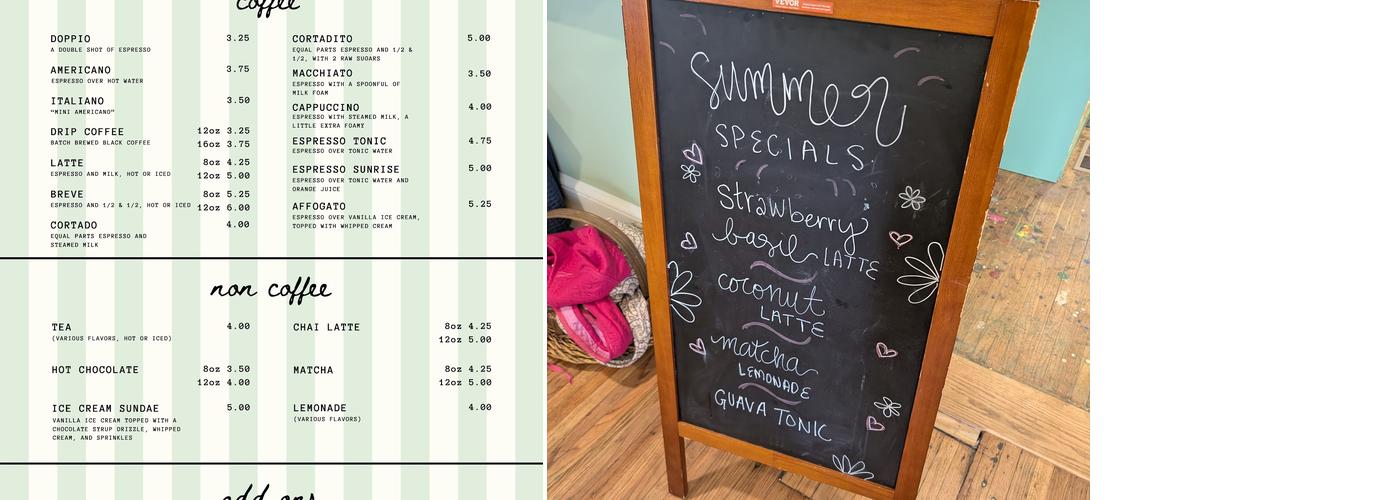 coffee
DOPPIO 3.25
A DOUBLE SHOT OF ESPRESSO
AMERICANO 3.75
ESPRESSO OVER HOT WATER
ITALIANO 3.50
"MINI AMERICANO"
DRIP COFFEE 12oz 3.25
BATCH BREWED BLACK COFFEE 16oz 3.75
LATTE 8oz 4.25
ESPRESSO AND MILK, HOT OR ICED 12oz 5.00
BREVE 8oz 5.25
ESPRESSO AND 1/2 & 1/2, HOT OR ICED 12oz 6.00
CORTADO 4.00
EQUAL PARTS ESPRESSO AND
STEAMED MILK
CORTADITO 5.00
EQUAL PARTS ESPRESSO AND 1/2 &
1/2, WITH 2 RAW SUGARS
MACCHIATO 3.50
ESPRESSO WITH A SPOONFUL OF
MILK FOAM
CAPPUCCINO 4.00
ESPRESSO WITH STEAMED MILK, A
LITTLE EXTRA FOAMY
ESPRESSO TONIC 4.75
ESPRESSO OVER TONIC WATER
ESPRESSO SUNRISE 5.00
ESPRESSO OVER TONIC WATER AND
ORANGE JUICE
AFFOGATO 5.25
ESPRESSO OVER VANILLA ICE CREAM,
TOPPED WITH WHIPPED CREAM
non coffee
TEA 4.00
(VARIOUS FLAVORS, HOT OR ICED)
HOT CHOCOLATE 8oz 3.50
12oz 4.00
ICE CREAM SUNDAE 5.00
VANILLA ICE CREAM TOPPED WITH A
CHOCOLATE SYRUP DRIZZLE, WHIPPED
CREAM, AND SPRINKLES
CHAI LATTE 8oz 4.25
12oz 5.00
MATCHA 8oz 4.25
12oz 5.00
LEMONADE 4.00
(VARIOUS FLAVORS)
add ons
VEVOR
summer
SPECIALS
Strawberry
basil LATTE
coconut
LATTE
matcha
LEMONADE
GUAVA TONIC